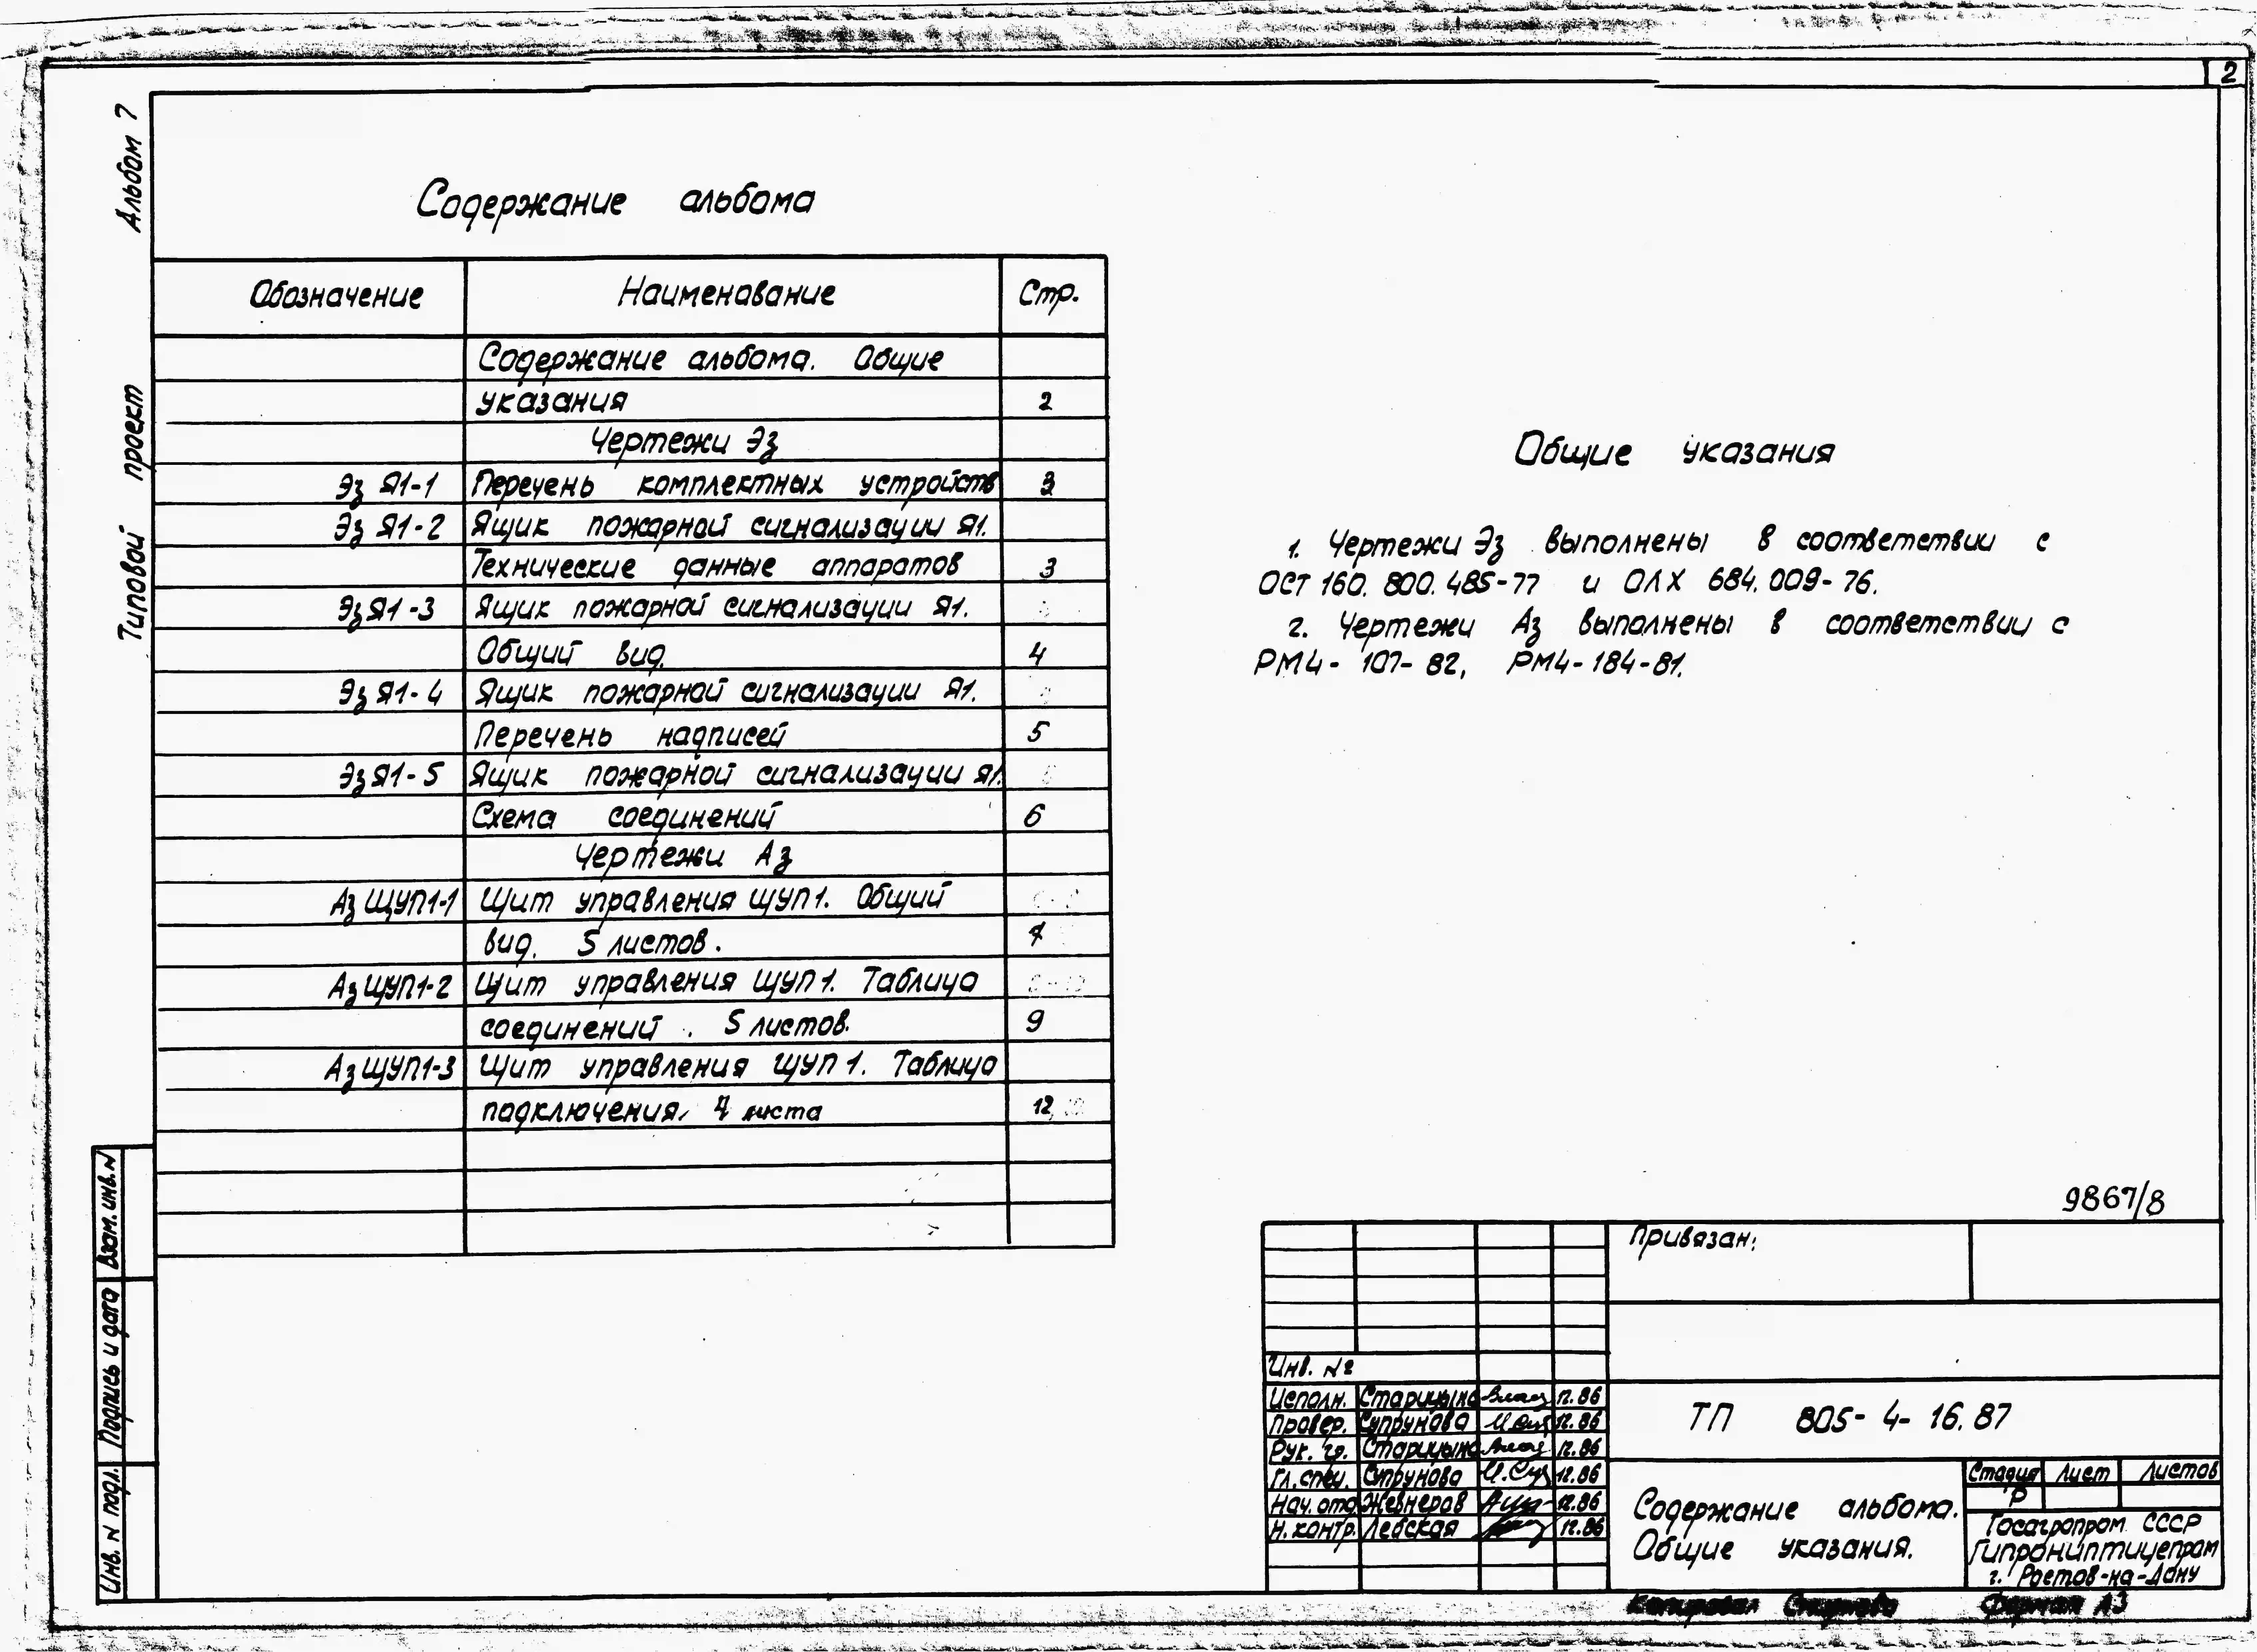 2
Альбом 7
Типовой проект
Содержание альбома
Обозначение Наименование Стр.
Содержание альбома. Общие
указания 2
Чертежи Эз
Эз Я1-1 Перечень комплектных устройств 3
Эз Я1-2 Ящик пожарной сигнализации Я1.
Технические данные аппаратов 3
Эз Я1-3 Ящик пожарной сигнализации Я1.
Общий вид. 4
Эз Я1-4 Ящик пожарной сигнализации Я1.
Перечень надписей 5
Эз Я1-5 Ящик пожарной сигнализации Я1.
Схема соединений 6
Чертежи Аз
Аз ЩУП1-1 Щит управления ЩУП1. Общий
вид. 5 листов. 7
Аз ЩУП1-2 Щит управления ЩУП1. Таблица
соединений. 5 листов. 9
Аз ЩУП1-3 Щит управления ЩУП1. Таблица
подключения. 4 листа 12
Общие указания
1. Чертежи Эз выполнены в соответствии с
ОСТ 160.800.485-77 и ОЛХ 684.009-76.
2. Чертежи Аз выполнены в соответствии с
РМ4-107-82, РМ4-184-81.
9867/8
Привязан:
Инв. №
Исполн. Старицына 12.86
Провер. Супрунова 12.86
Рук. гр. Старицына 12.86
Гл. спец. Супрунова 12.86
Нач. отд. Жевнеров 12.86
Н. контр. Левская 12.86
ТП 805-4-16.87
Содержание альбома.
Общие указания.
Стадия Лист Листов
Р
Госагропром СССР
Гипрониптицепром
г. Ростов-на-Дону
Копировал
Формат А3
Взам. инв. N
Подпись и дата
Инв. N подл.